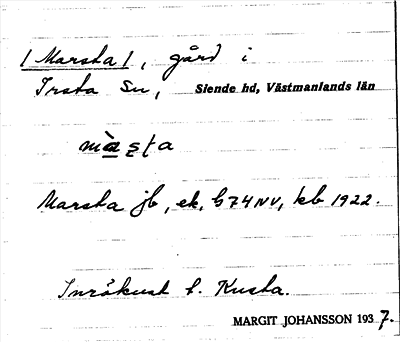 / Marsta /, gård i
Irsta sn, Siende hd, Västmanlands län
màsta
Marsta jb, ek, G74NV, kb 1922.
Inrökust t. Kusta.
MARGIT JOHANSSON 1937.